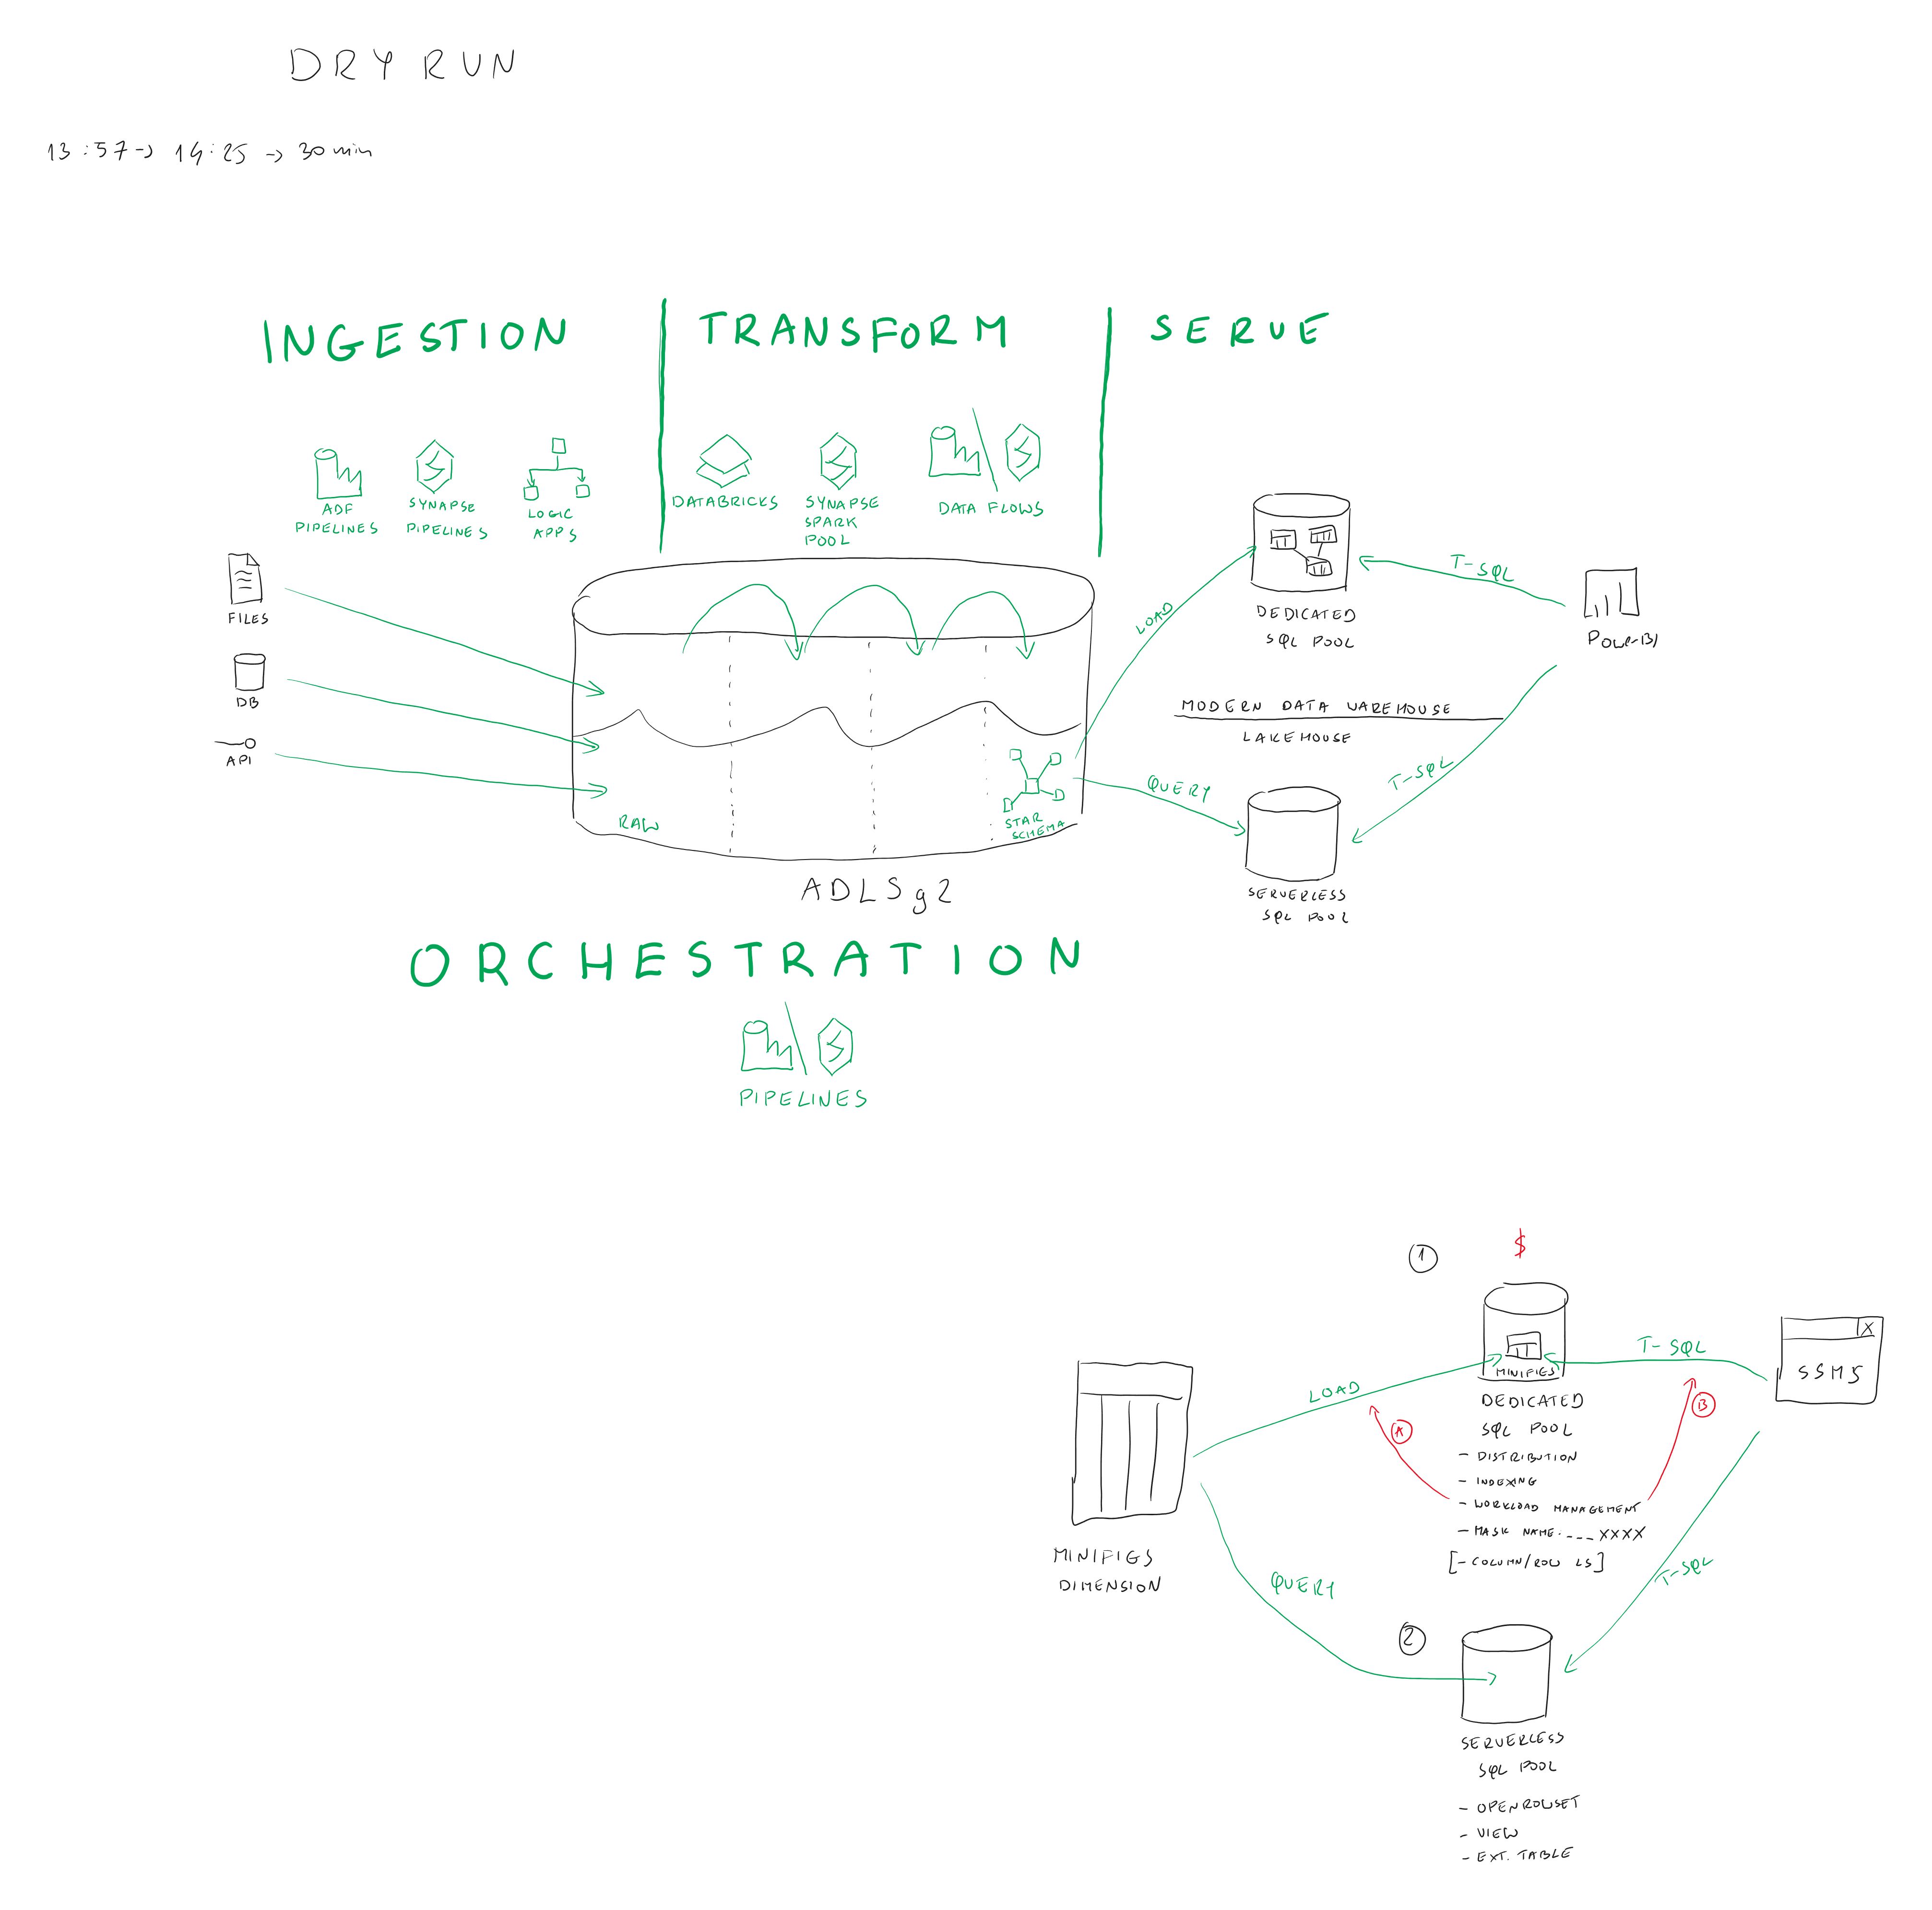 DRY RUN
13:57 -> 14:25 -> 30 min
INGESTION
TRANSFORM
SERVE
ADF
PIPELINES
SYNAPSE
PIPELINES
LOGIC
APPS
DATABRICKS
SYNAPSE
SPARK
POOL
DATA FLOWS
FILES
DB
API
RAW
STAR
SCHEMA
ADLSg2
LOAD
QUERY
DEDICATED
SQL POOL
T-SQL
PowerBI
MODERN DATA WAREHOUSE
LAKEHOUSE
T-SQL
SERVERLESS
SQL POOL
ORCHESTRATION
PIPELINES
MINIFIGS
DIMENSION
LOAD
QUERY
1
$
MINIFIGS
DEDICATED
SQL POOL
- DISTRIBUTION
- INDEXING
- WORKLOAD MANAGEMENT
- MASK NAME: ___XXXX
[- COLUMN/ROW LS]
A
B
T-SQL
X
SSMS
T-SQL
2
SERVERLESS
SQL POOL
- OPENROWSET
- VIEW
- EXT. TABLE